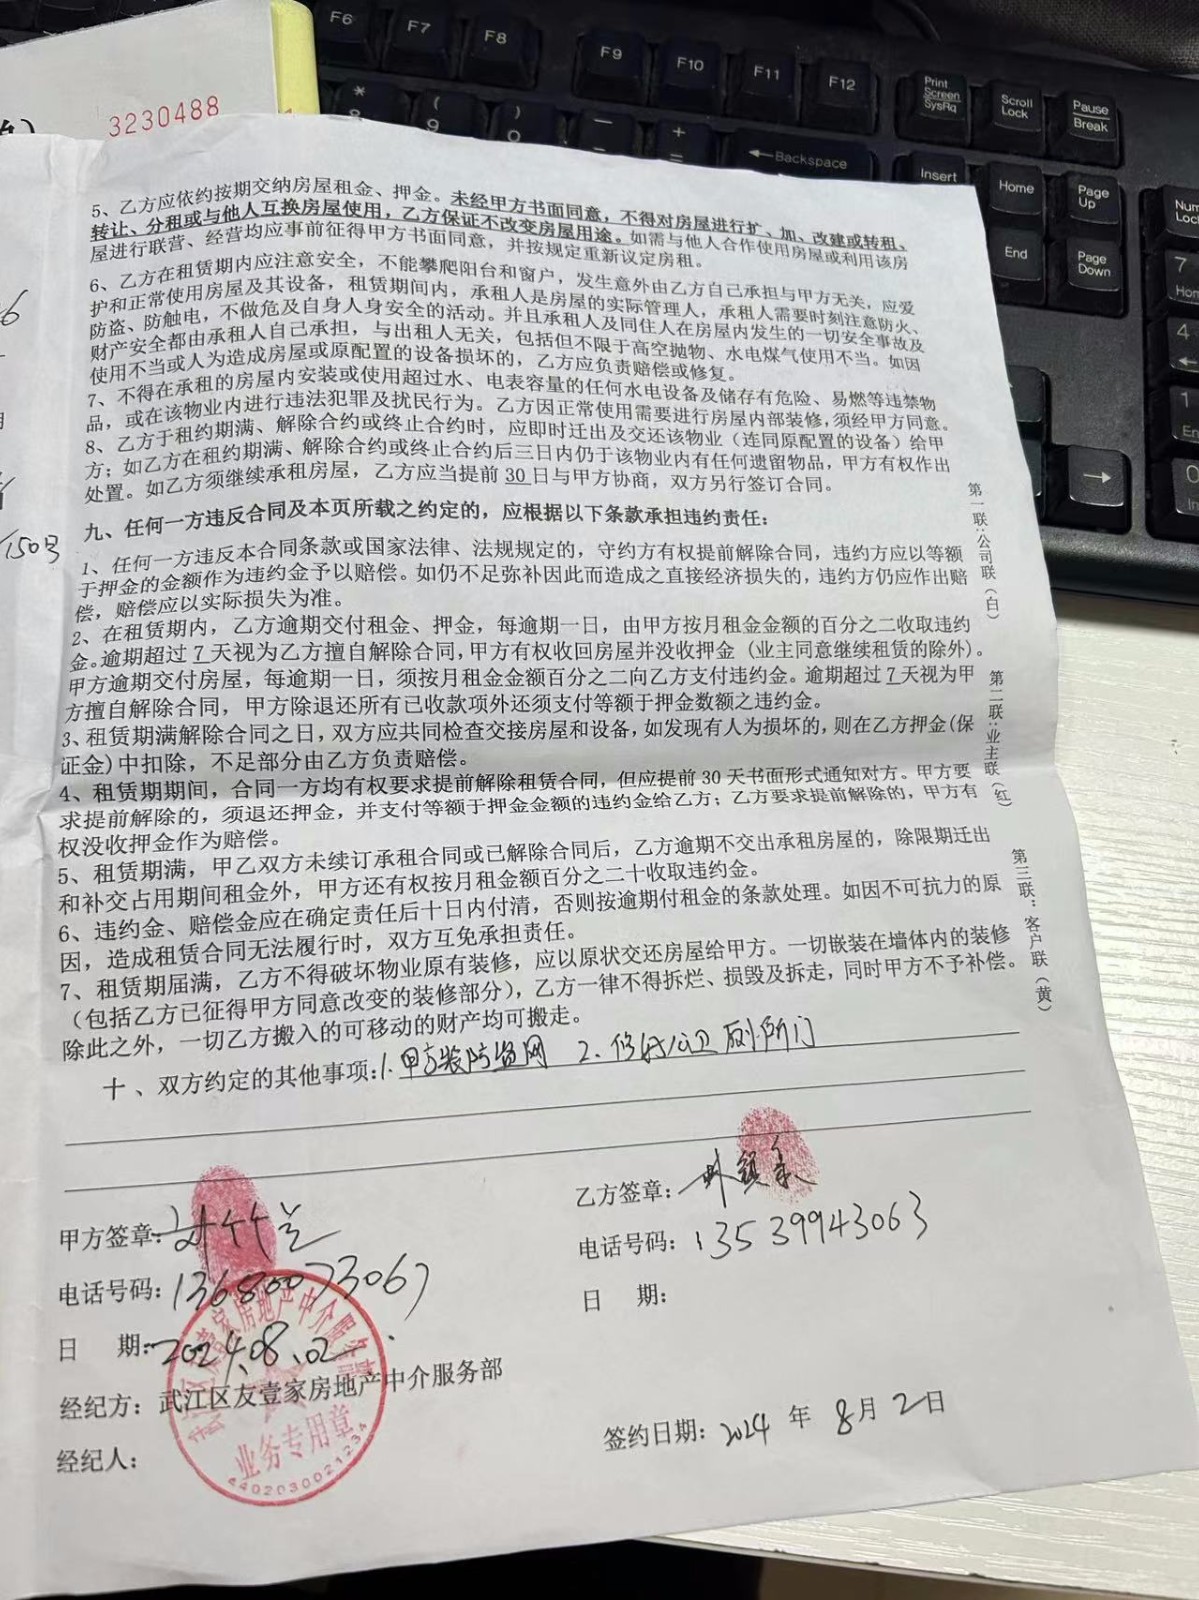 F6
F7
F8
F9
F10
F11
F12
Print
Screen
SysRq
Scroll
Lock
Pause
Break
*
8
(
9
)
0
—
+
=
←Backspace
Insert
Home
Page
Up
End
Page
Down
Num
Lock
7
4
←
1
→
3230488
5、乙方应依约按期交纳房屋租金、押金。未经甲方书面同意,不得对房屋进行扩、加、改建或转租、
转让、分租或与他人互换房屋使用,乙方保证不改变房屋用途。如需与他人合作使用房屋或利用该房
屋进行联营、经营均应事前征得甲方书面同意,并按规定重新议定房租。
6、乙方在租赁期内应注意安全,不能攀爬阳台和窗户,发生意外由乙方自己承担与甲方无关,应爱
护和正常使用房屋及其设备,租赁期间内,承租人是房屋的实际管理人,承租人需要时刻注意防火、
防盗、防触电,不做危及自身人身安全的活动。并且承租人及同住人在房屋内发生的一切安全事故及
财产安全都由承租人自己承担,与出租人无关,包括但不限于高空抛物、水电煤气使用不当。如因
使用不当或人为造成房屋或原配置的设备损坏的,乙方应负责赔偿或修复。
7、不得在承租的房屋内安装或使用超过水、电表容量的任何水电设备及储存有危险、易燃等违禁物
品,或在该物业内进行违法犯罪及扰民行为。乙方因正常使用需要进行房屋内部装修,须经甲方同意。
8、乙方于租约期满、解除合约或终止合约时,应即时迁出及交还该物业(连同原配置的设备)给甲
方;如乙方在租约期满、解除合约或终止合约后三日内仍于该物业内有任何遗留物品,甲方有权作出
处置。如乙方须继续承租房屋,乙方应当提前30日与甲方协商,双方另行签订合同。
九、任何一方违反合同及本页所载之约定的,应根据以下条款承担违约责任:
1、任何一方违反本合同条款或国家法律、法规规定的,守约方有权提前解除合同,违约方应以等额
于押金的金额作为违约金予以赔偿。如仍不足弥补因此而造成之直接经济损失的,违约方仍应作出赔
偿,赔偿应以实际损失为准。
2、在租赁期内,乙方逾期交付租金、押金,每逾期一日,由甲方按月租金金额的百分之二收取违约
金。逾期超过7天视为乙方擅自解除合同,甲方有权收回房屋并没收押金(业主同意继续租赁的除外)。
甲方逾期交付房屋,每逾期一日,须按月租金金额百分之二向乙方支付违约金。逾期超过7天视为甲
方擅自解除合同,甲方除退还所有已收款项外还须支付等额于押金数额之违约金。
3、租赁期满解除合同之日,双方应共同检查交接房屋和设备,如发现有人为损坏的,则在乙方押金(保
证金)中扣除,不足部分由乙方负责赔偿。
4、租赁期期间,合同一方均有权要求提前解除租赁合同,但应提前30天书面形式通知对方。甲方要
求提前解除的,须退还押金,并支付等额于押金金额的违约金给乙方;乙方要求提前解除的,甲方有
权没收押金作为赔偿。
5、租赁期满,甲乙双方未续订承租合同或已解除合同后,乙方逾期不交出承租房屋的,除限期迁出
和补交占用期间租金外,甲方还有权按月租金额百分之二十收取违约金。
6、违约金、赔偿金应在确定责任后十日内付清,否则按逾期付租金的条款处理。如因不可抗力的原
因,造成租赁合同无法履行时,双方互免承担责任。
7、租赁期届满,乙方不得破坏物业原有装修,应以原状交还房屋给甲方。一切嵌装在墙体内的装修
(包括乙方已征得甲方同意改变的装修部分),乙方一律不得拆烂、损毁及拆走,同时甲方不予补偿。
除此之外,一切乙方搬入的可移动的财产均可搬走。
十、双方约定的其他事项:1.甲方装防盗网 2、修好公卫厕所门
第一联:公司联(白)
第二联:业主联(红)
第三联:客户联(黄)
甲方签章:
电话号码:13680073067
日 期:2024.08.02
经纪方:武江区友壹家房地产中介服务部
经纪人:
乙方签章:
电话号码:13539943063
日 期:
签约日期:2024年8月2日
武江区友壹家房地产中介服务部
业务专用章
4402030021234